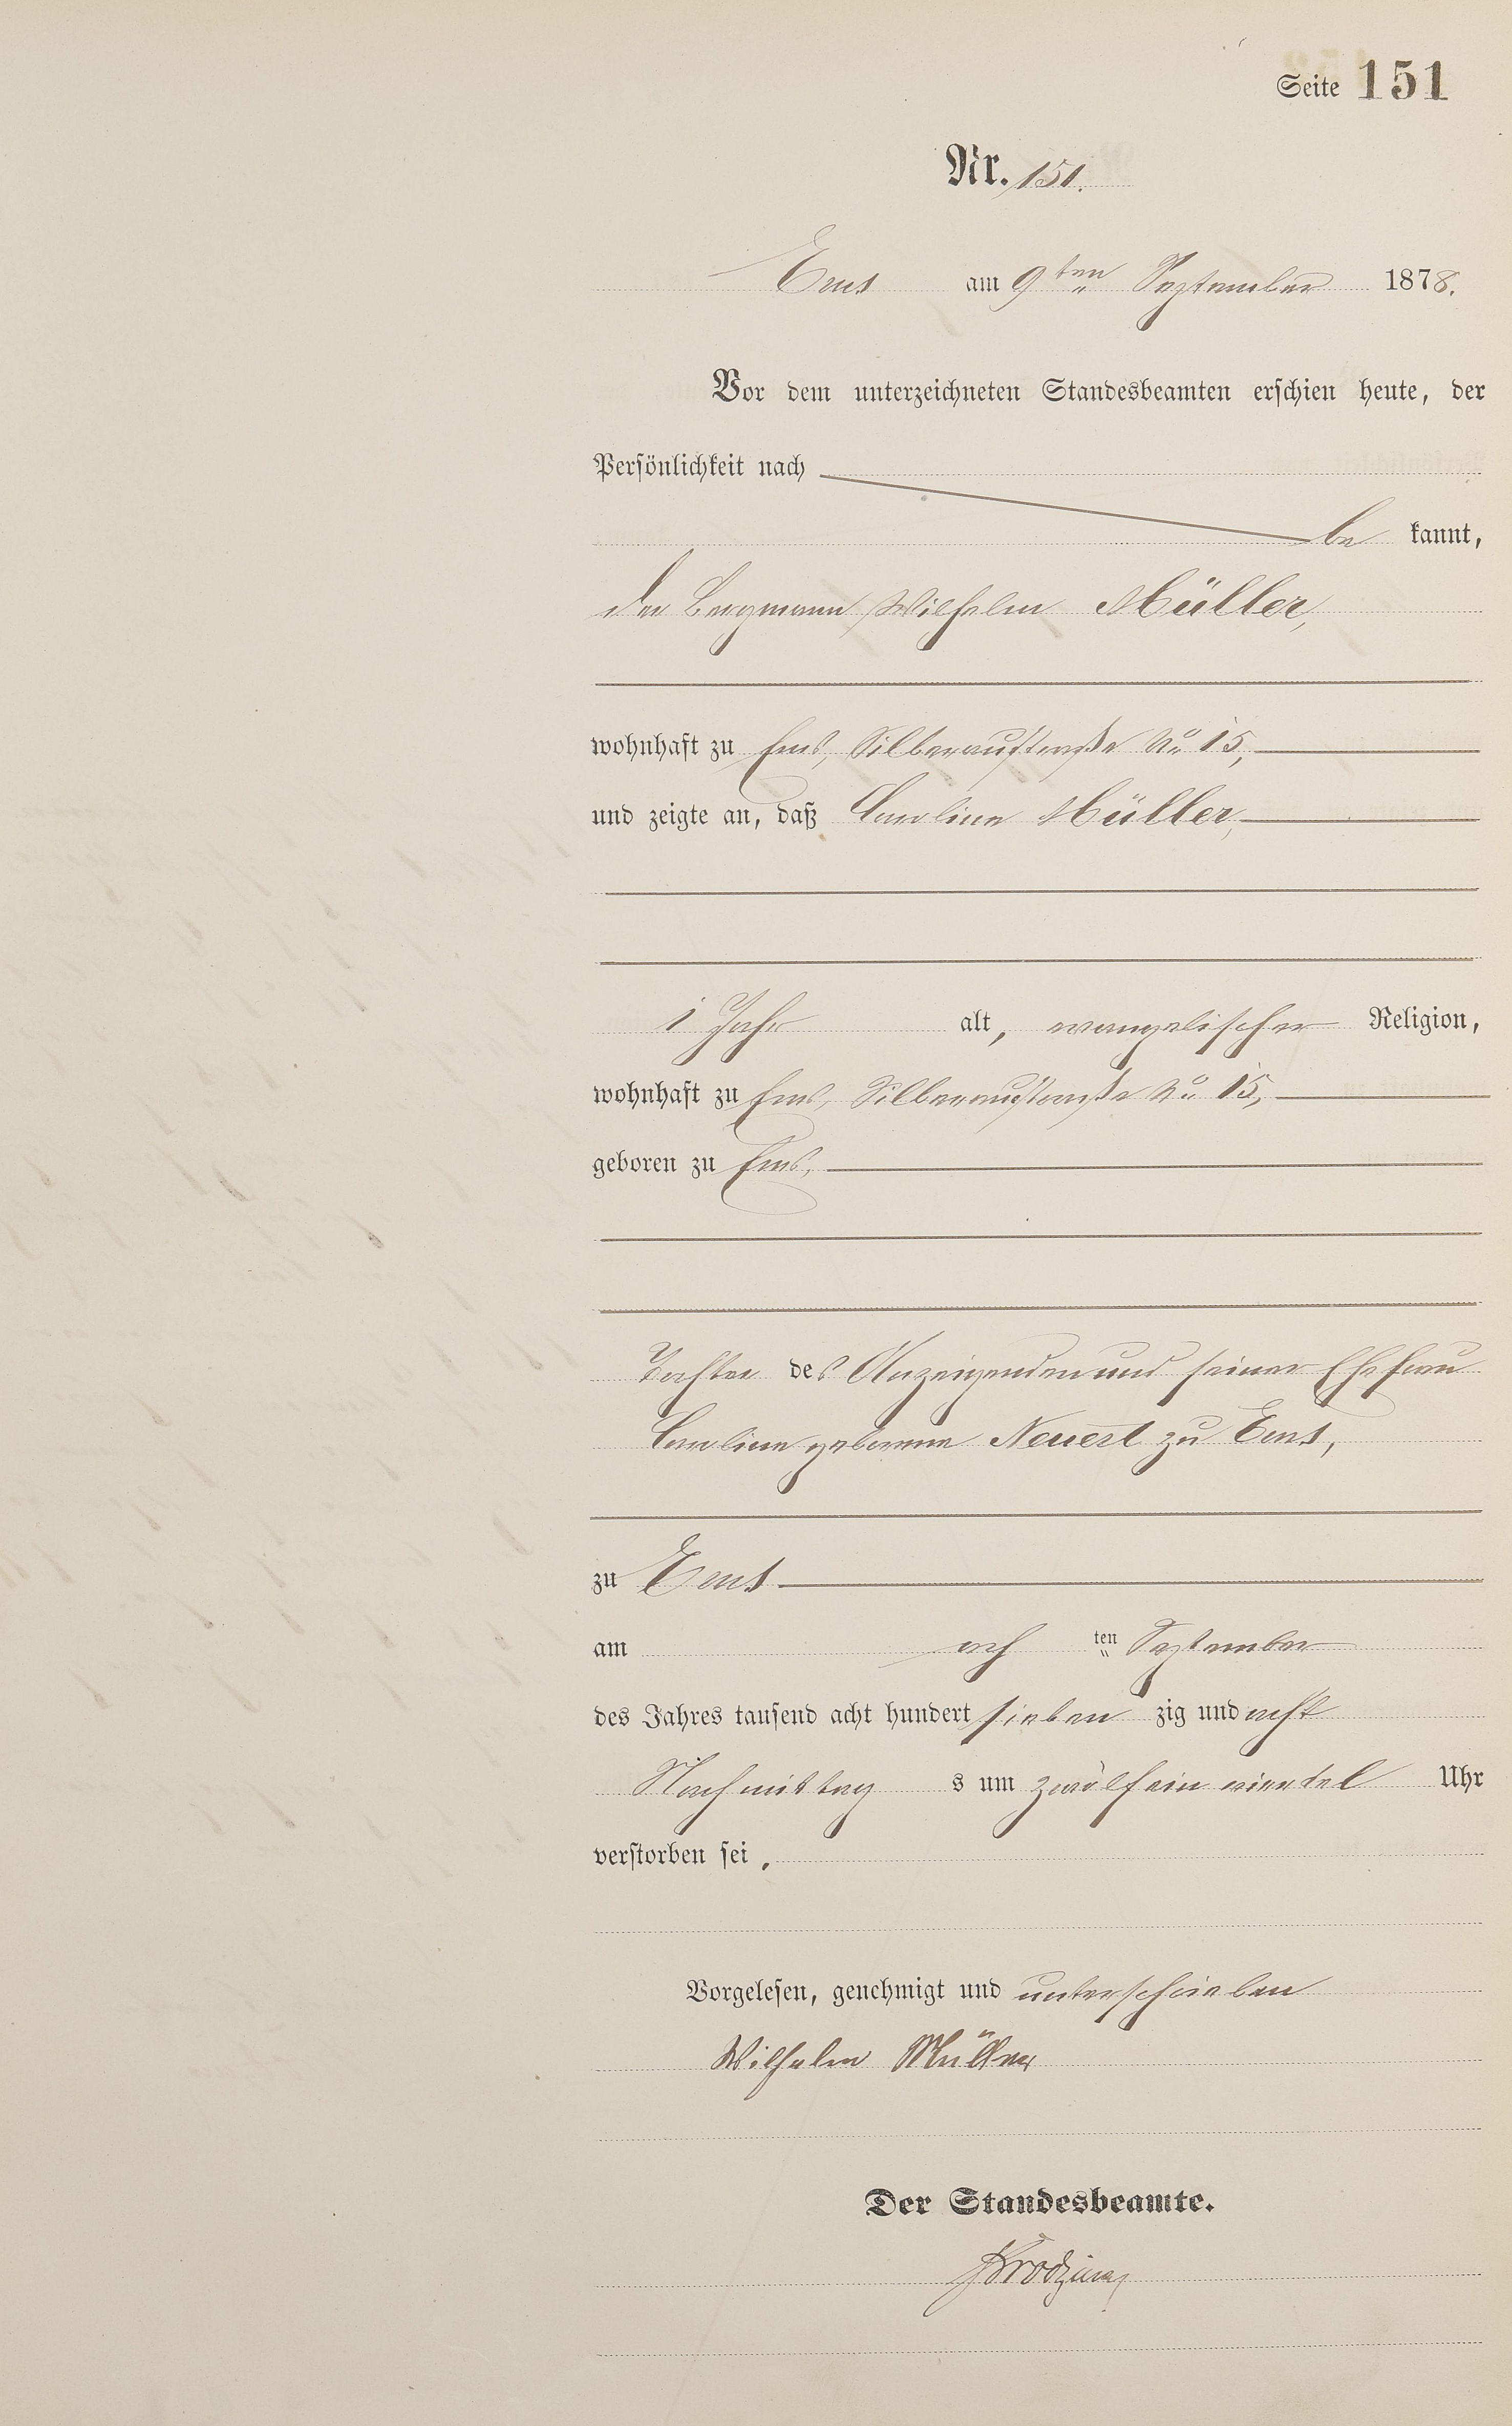 Seite 151
Nr. 151.
Ems am 9ten September 1878.
Vor dem unterzeichneten Standesbeamten erschien heute, der
Persönlichkeit nach
be kannt,
der Bergmann Wilhelm Müller,
wohnhaft zu Ems, Silberaustraße No 15,
und zeigte an, daß Caroline Müller,
1 Jahr alt, evangelischer Religion,
wohnhaft zu Ems, Silberaustraße No 15,
geboren zu Ems,
Tochter des Anzeigenden und seiner Ehefrau
Caroline geborene Neuert zu Ems,
zu Ems
am ach ten September
des Jahres tausend acht hundert sieben zig und acht
Nachmittag s um zwölf ein viertel Uhr
verstorben sei.
Vorgelesen, genehmigt und unterschrieben
Wilhelm Müller
Der Standesbeamte.